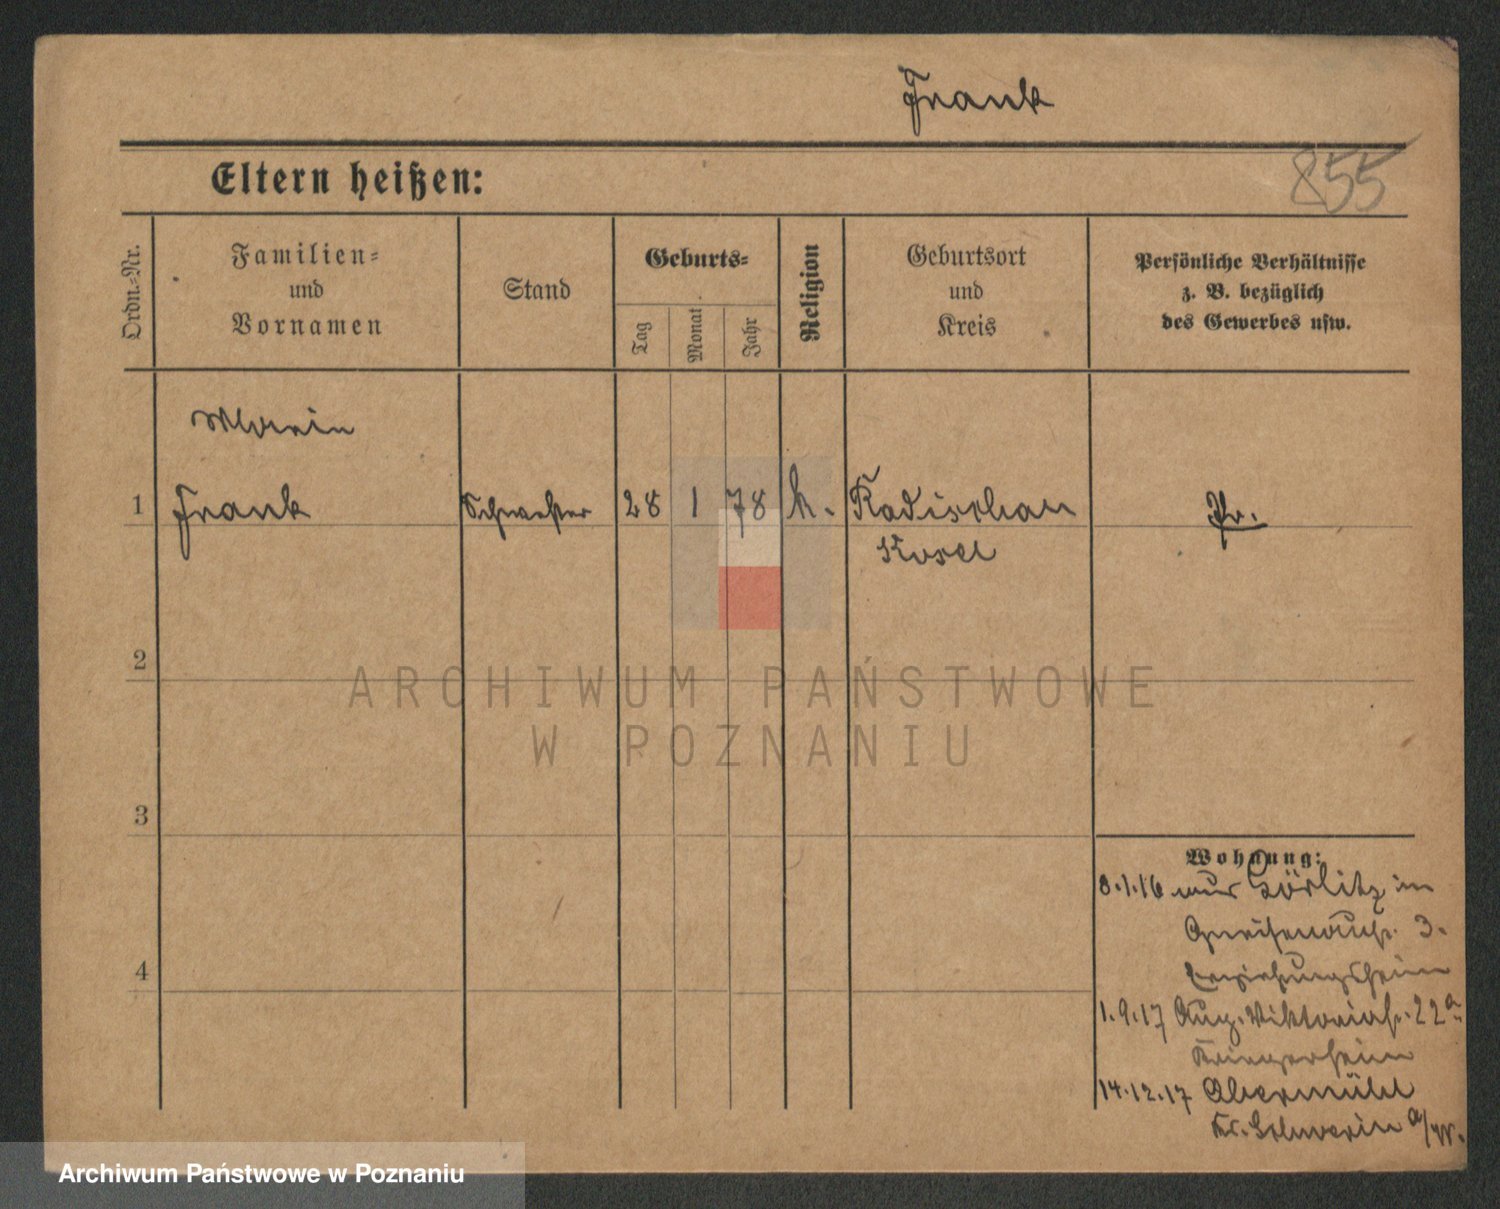 Frank
Eltern heißen:
855
Ordn.-Nr.
Familien-
und
Vornamen
Stand
Geburts-
Tag
Monat
Jahr
Religion
Geburtsort
und
Kreis
Persönliche Verhältnisse
z. B. bezüglich
des Gewerbes usw.
Maria
1 Frank Schwester 28 1 78 k. Radischau Pr.
Kosel
2
ARCHIWUM PAŃSTWOWE
W POZNANIU
3
Wohnung:
8.1.16 aus Görlitz in
Gneisenaustr. 3.
Erziehungsheim
4
1.9.17 Aug. Viktoriastr. 22a
Kriegerheim
14.12.17 Altermühl
Kr. Schwerin a/W.
Archiwum Państwowe w Poznaniu